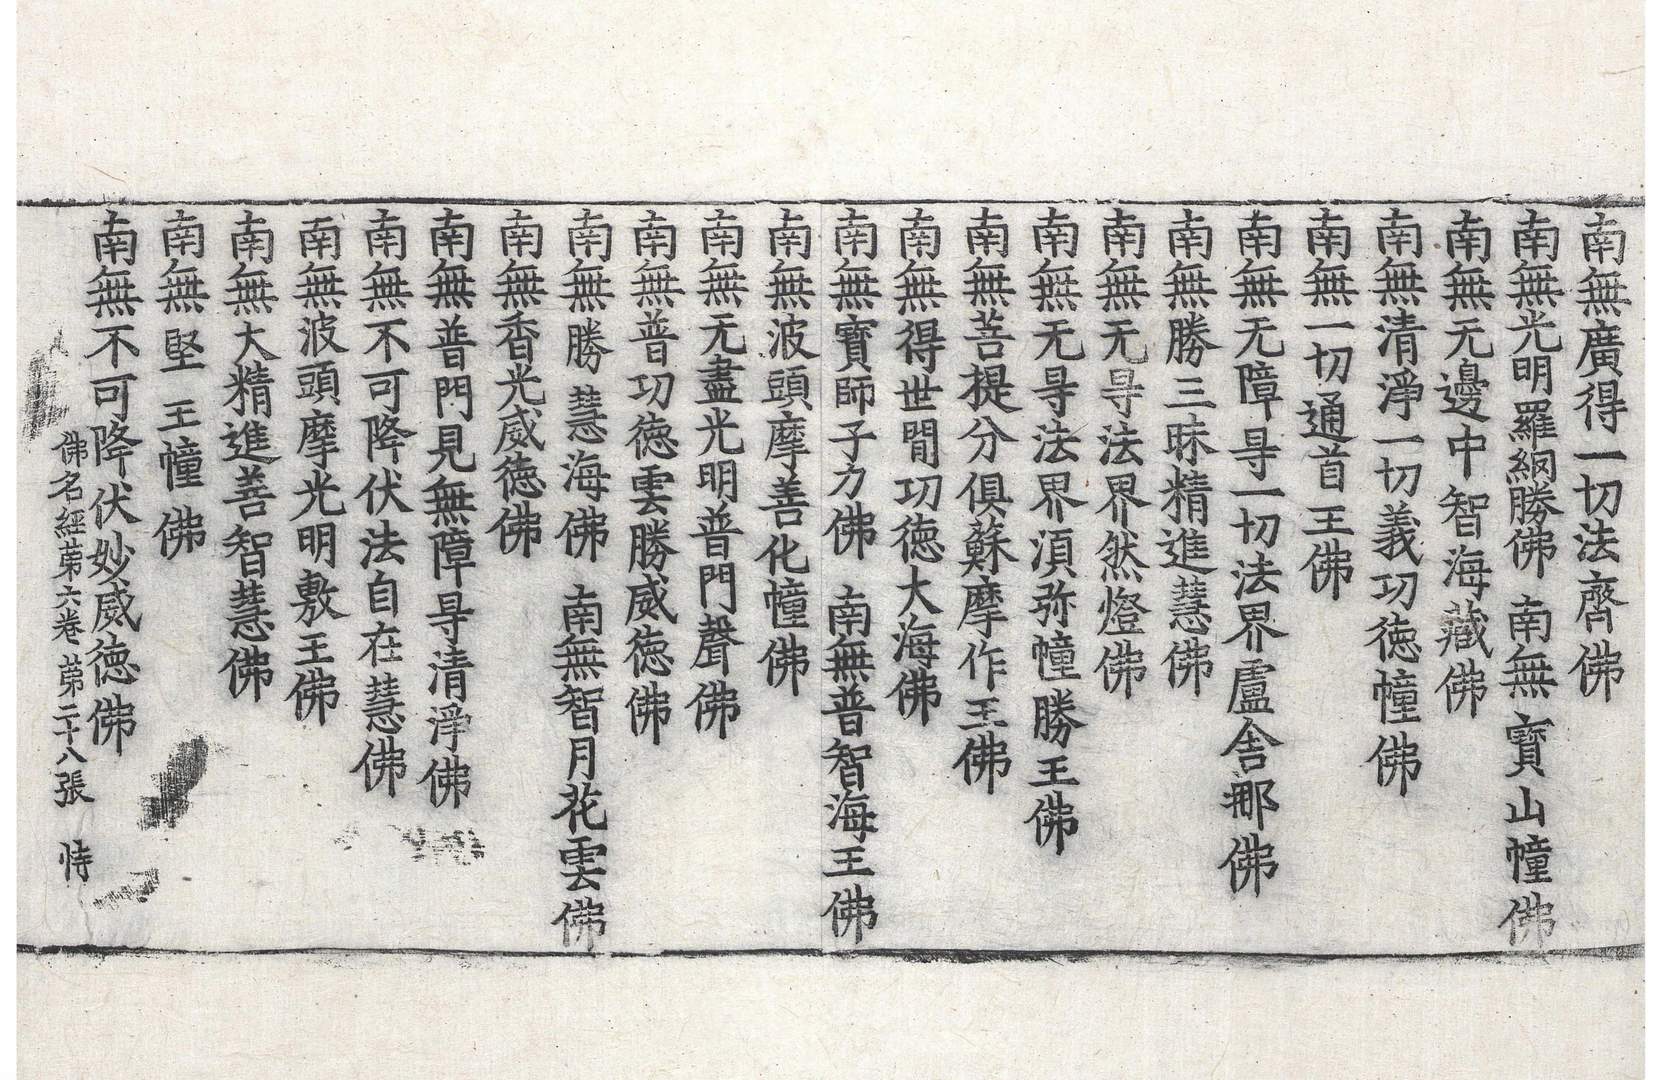 南無廣得一切法齊佛
南無光明羅網勝佛　南無寶山幢佛
南無无邊中智海藏佛
南無清淨一切義功徳幢佛
南無一切通首王佛
南無无障㝵一切法界盧舎那佛
南無勝三昧精進慧佛
南無无㝵法界然燈佛
南無无㝵法界湏弥幢勝王佛
南無菩提分俱蘇摩作王佛
南無得世間功徳大海佛
南無寶師子力佛　南無普智海王佛
南無波頭摩善化幢佛
南無无盡光明普門聲佛
南無普功徳雲勝威徳佛
南無勝慧海佛　南無智月花雲佛
南無香光威徳佛
南無普門見無障㝵清淨佛
南無不可降伏法自在慧佛
南無波頭摩光明敷王佛
南無大精進善智慧佛
南無堅王幢佛
南無不可降伏妙威徳佛
佛名經苐六卷　苐二十八張　恃